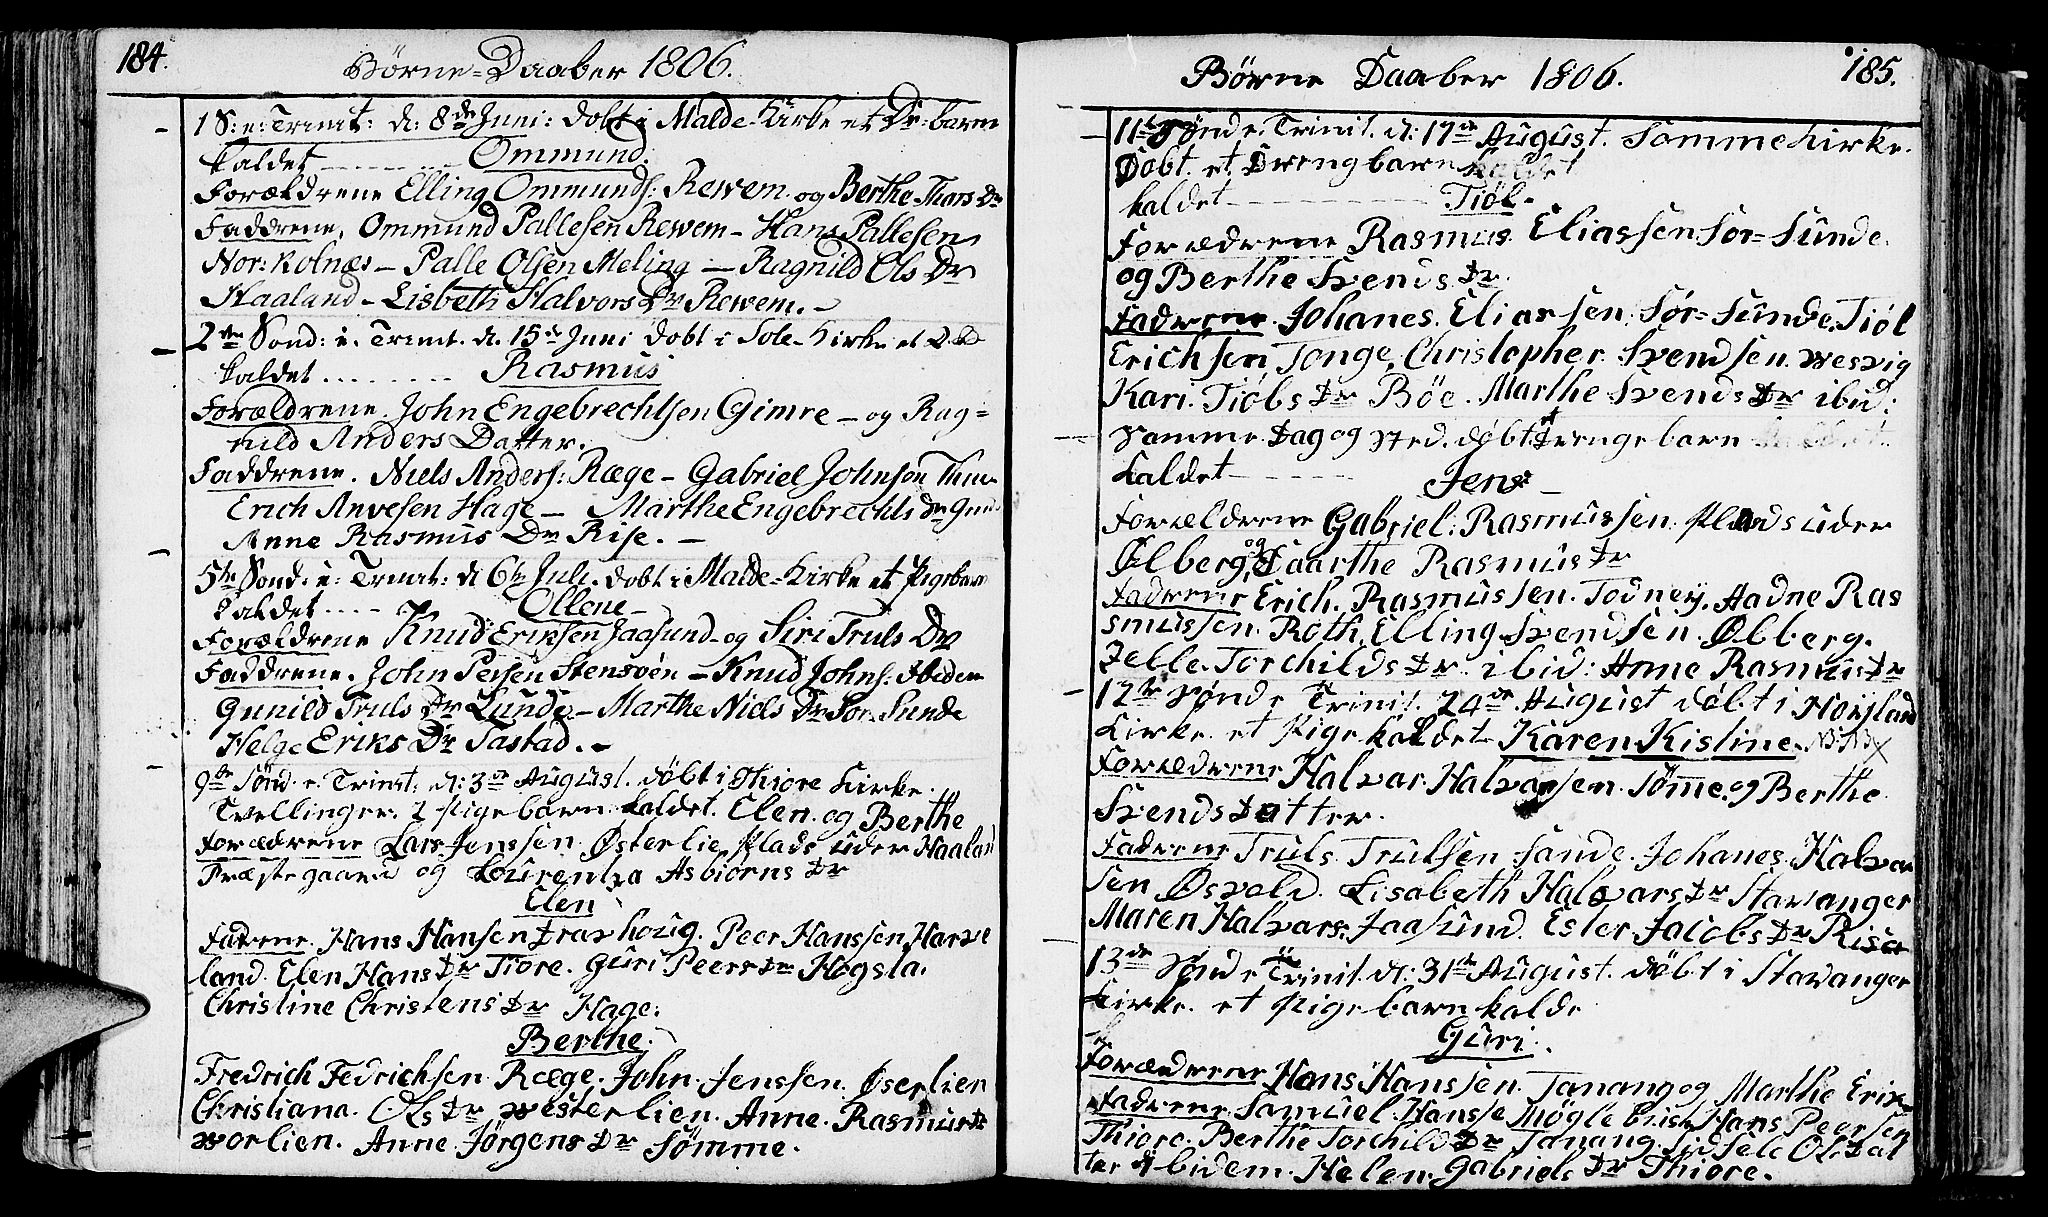 184.
Börne-Daaber 1806.
1 S: e: Trinit: d: 8de Juni: döbt i Malde-Kirke et Dr: barn
kaldet Ommund.
Forældrene Elling Ommunds: Rewem og Berthe Thors Dr
Faddrene, Ommund Pallesen Rewem - Hans Pallesen
Nor: Kolnæs - Palle Olsen Meling - Ragnild Ols Dr
Haaland - Lisbeth Halvors Dr Rewem. -
2den Sönd: e. Trinit. d. 15de Juni döbt i Sole-Kirke et
kaldet Rasmus
Forældrene. John Engebrechtsen Gimre - og Rag=
nild Anders Datter.
Faddrene. Niels Anders: Ræge - Gabriel Johnson
Erich Anvesen Hage - Marthe Engebrechts Dr
Anne Rasmus Dr Rise. -
5te Sönd: e: Trinit: d 6te Juli. döbt i Malde-Kirke et Pigebarn
kaldet Ollene -
Forældrene Knud Eriksen Jaasund - og Siri Truls Dr
Faddrene. John Persen Stensvön - Knud Johns: Ibidem
Gunild Truls Dr Sunde - Marthe Niels Dr Sör-Sunde
Helge Eriks Dr Sastad. -
9de Sönd. e. Trinit: d: 3de August. döbt i Thiore Kirke.
Tvellinger. 2 Pigebarn kaldet. Elen. og Berthe
Forædrene Lars Jenssen Østerlie Plads under Haaland
Præstegaard og Lourentza Asbiörns Dr
Elen
Fadrene. Hans Hansen Travhoug. Peer Hanssen Harve
land. Elen Hans Dr Tiore. Guri Peers Dr Hogsta.
Christine Christens Dr Hage.
Berthe.
Fredrich Fedrichsen Ræge. John. Jenssen. Øserlien
Christiana. Ols Dr westerlien. Anne. Rasmus Dr
vorlien. Anne Jørgens Dr Sømme.
Børne Daaber 1806.
185.
11te Sönd e. Trinit. d: 17de August. Somme Kirke.
Döbt. et Drengbarn kaldet
kaldet Tiöl.
Forædrene Rasmus Eliassen Sör-Sunde.
og Berthe Svends Dr.
Fadrene. Johanes. Eliassen Sör-Sunde. Tiöl
Erichsen Tonge, Christopher Svendsen wesvig
Kari. Tiöbs Dr Böe. Marthe Svends Dr ibid:
Samme Dag og sted. döbt et Drengebarn
kaldet Jens -
Forældrene Gabriel: Rasmussen Plads uder
Ølberg, og Taarthe Rasmus Dr
Fadrene Erich. Rasmussen. Todney. Aadne Ras
smussen. Roth. Elling Svendsen. Ølberg.
Zelle. Torchilds Dr. ibid: Anne Rasmus Dr
12te Sönd e Trinit. 24de August döbt i Höyland
Kirke. et Pige kaldet Karen Kistine. NB. NB
Forædrene Halvar Halvarsen. Sömme. og Berthe
Svends Datter.
Fadrene Truls. Trulsen Sande. Johanes. Halvar
sen Øsvold. Lisabeth Halvars Dr Stavanger
Maren Halvars. Jaasund. Ester Jacobs Dr Risa
13de Sönd e Trinit. d: 31te August. döbt i Stavanger
Kirke. et Pigebarn kalde
Guri.
Forædrene Hans Hanssen. Tanang og Marthe Erik
Fadrene. Samuel. Hansse Mögle Hans Peersen
Thiore. Berthe Torchilds Dr Tanang. Sidsele Ol Dat
ter ibidem. Helen Gabriels Dr Thiore.